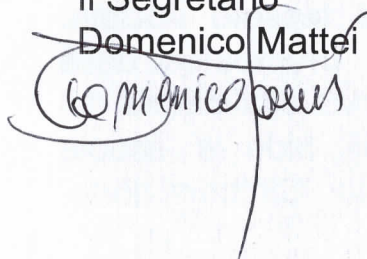 Il Segretario
Domenico Mattei
Domenico